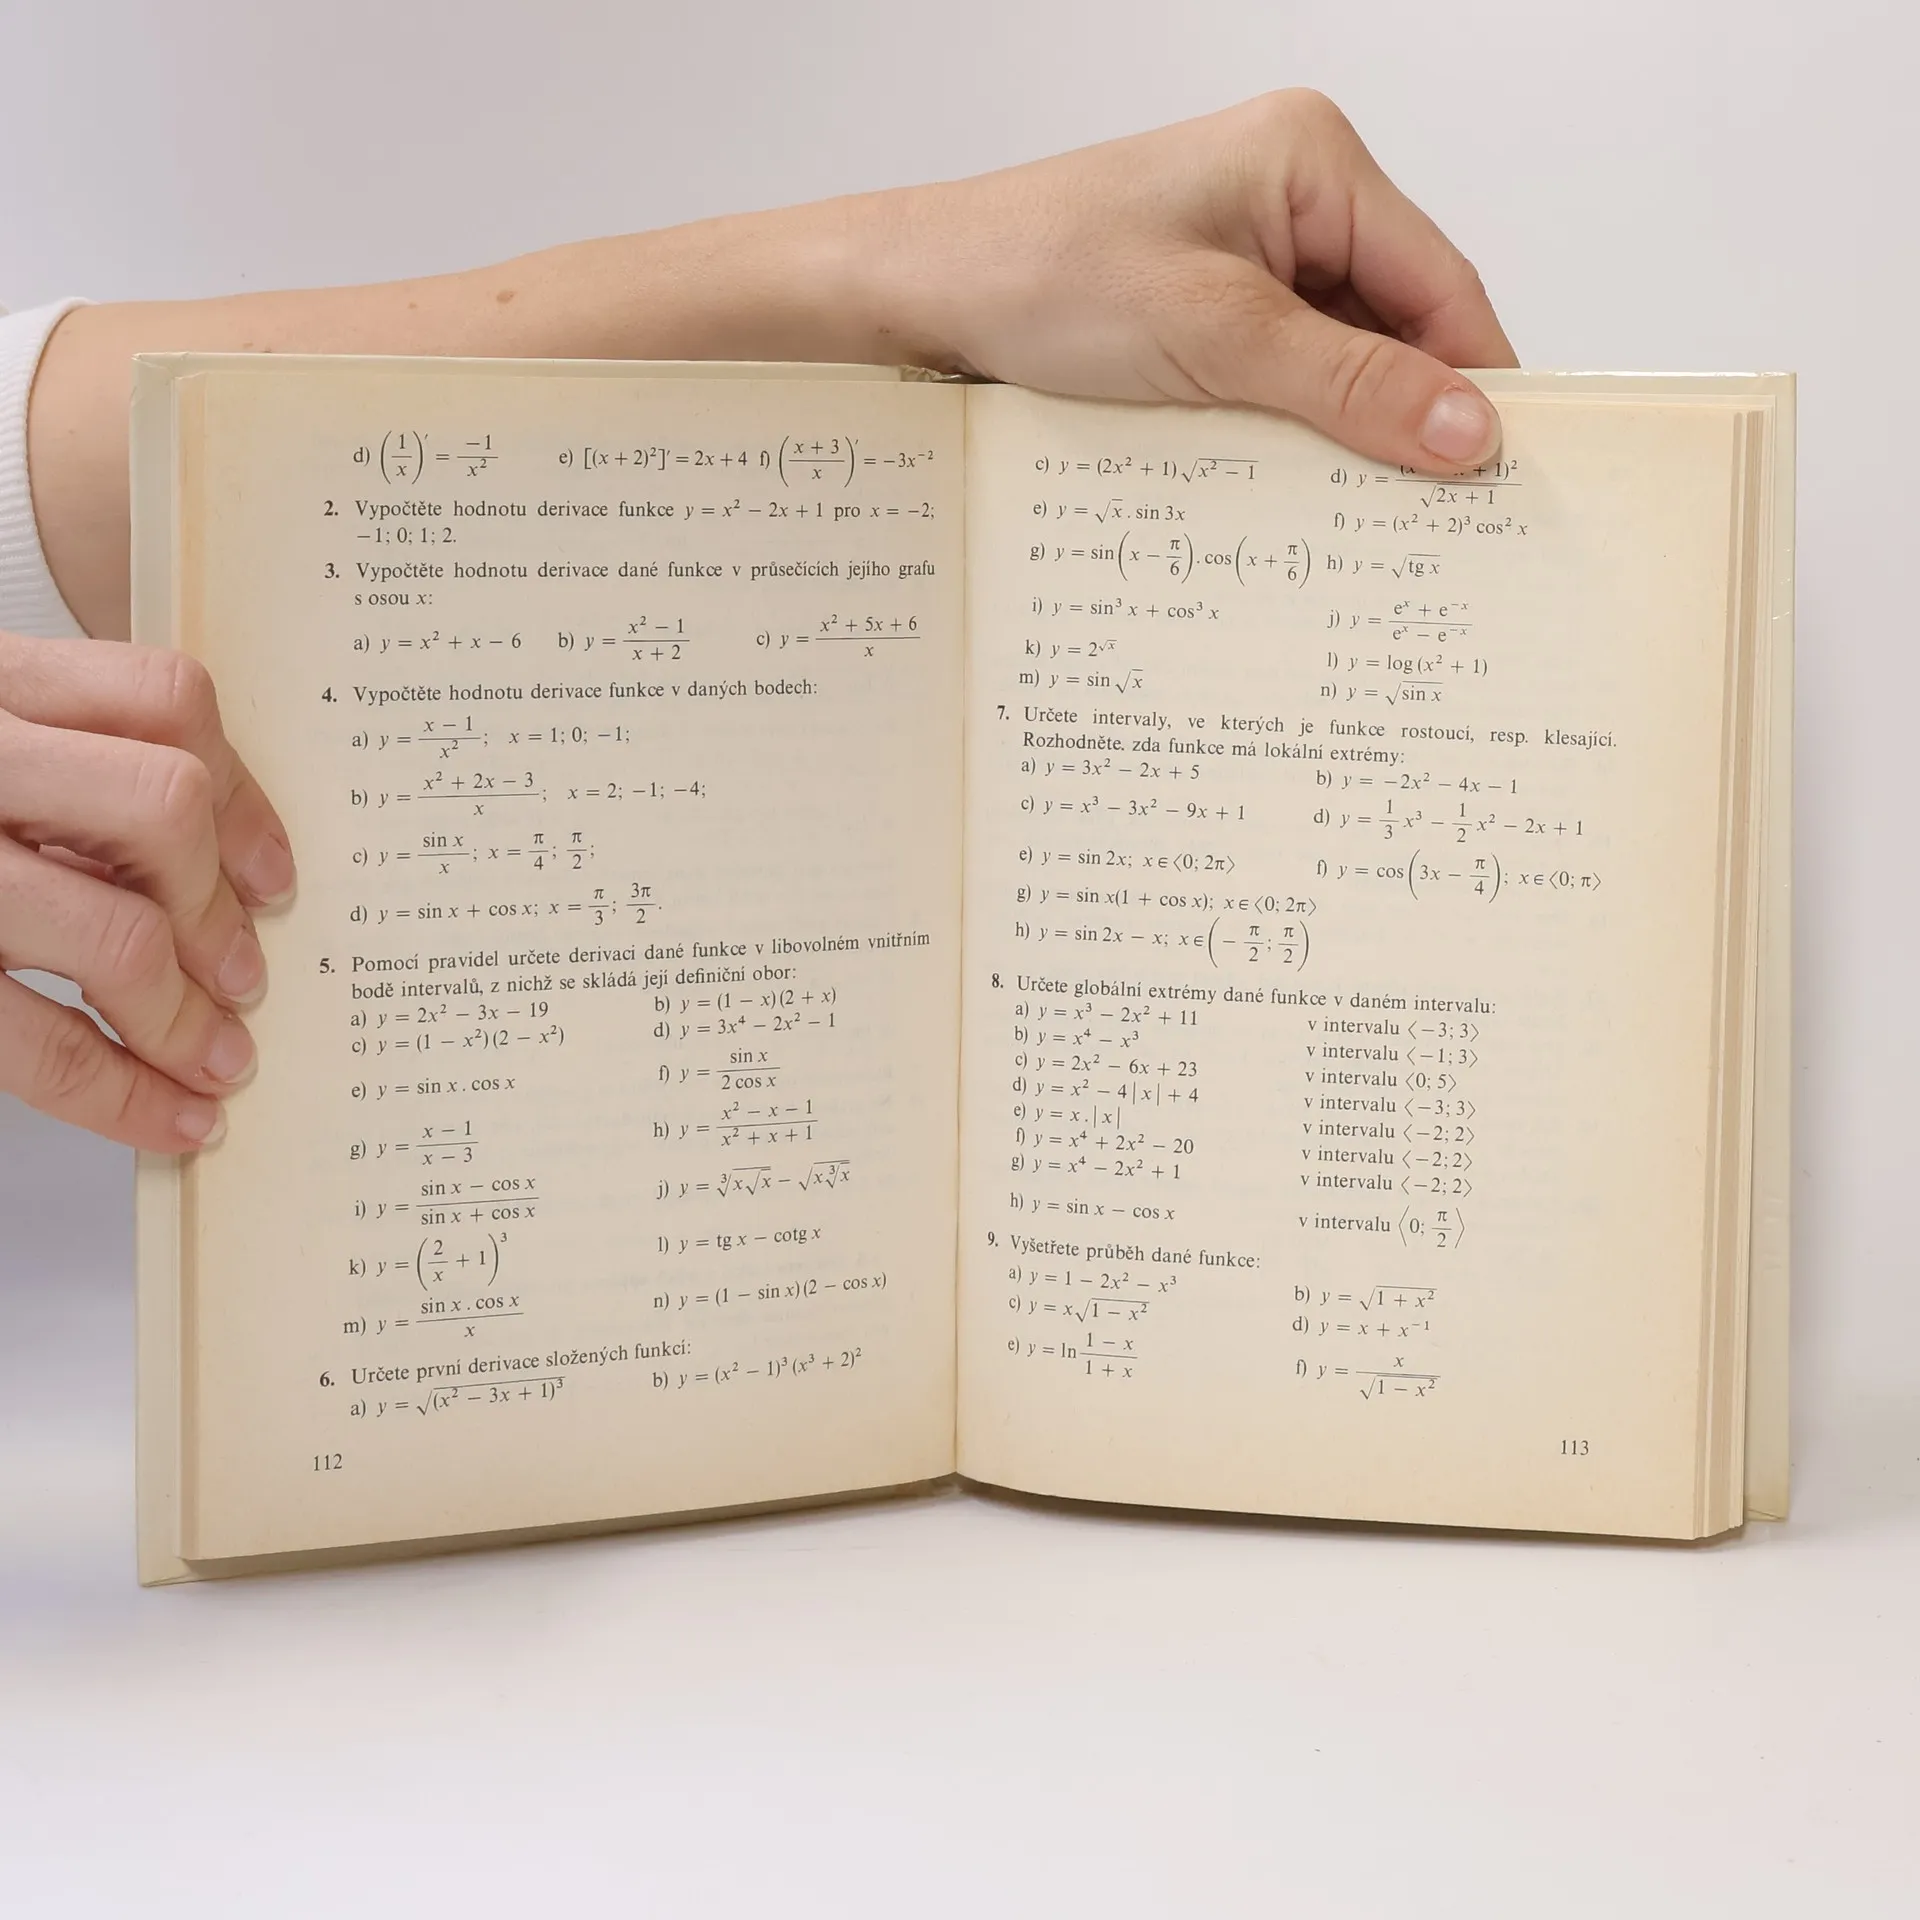 d) (1/x)′ = −1/x² e) [(x + 2)²]′ = 2x + 4 f) ((x + 3)/x)′ = −3x⁻²
2. Vypočtěte hodnotu derivace funkce y = x² − 2x + 1 pro x = −2;
−1; 0; 1; 2.
3. Vypočtěte hodnotu derivace dané funkce v průsečících jejího grafu
s osou x:
a) y = x² + x − 6 b) y = (x² − 1)/(x + 2) c) y = (x² + 5x + 6)/x
4. Vypočtěte hodnotu derivace funkce v daných bodech:
a) y = (x − 1)/x²; x = 1; 0; −1;
b) y = (x² + 2x − 3)/x; x = 2; −1; −4;
c) y = sin x/x; x = π/4; π/2;
d) y = sin x + cos x; x = π/3; 3π/2.
5. Pomocí pravidel určete derivaci dané funkce v libovolném vnitřním
bodě intervalů, z nichž se skládá její definiční obor:
a) y = 2x² − 3x − 19 b) y = (1 − x)(2 + x)
c) y = (1 − x²)(2 − x²) d) y = 3x⁴ − 2x² − 1
e) y = sin x . cos x f) y = sin x/2 cos x
g) y = (x − 1)/(x − 3) h) y = (x² − x − 1)/(x² + x + 1)
i) y = (sin x − cos x)/(sin x + cos x) j) y = ∛(x√x) − √(x∛x)
k) y = (2/x + 1)³ l) y = tg x − cotg x
m) y = sin x . cos x/x n) y = (1 − sin x)(2 − cos x)
6. Určete první derivace složených funkcí:
a) y = √((x² − 3x + 1)³) b) y = (x² − 1)³ (x³ + 2)²
112
c) y = (2x² + 1) √(x² − 1) d) y = + 1)²/√(2x + 1)
e) y = √x . sin 3x f) y = (x² + 2)³ cos² x
g) y = sin(x − π/6) . cos(x + π/6) h) y = √(tg x)
i) y = sin³ x + cos³ x j) y = (eˣ + e⁻ˣ)/(eˣ − e⁻ˣ)
k) y = 2^√x l) y = log (x² + 1)
m) y = sin √x n) y = √(sin x)
7. Určete intervaly, ve kterých je funkce rostoucí, resp. klesající.
Rozhodněte, zda funkce má lokální extrémy:
a) y = 3x² − 2x + 5 b) y = −2x² − 4x − 1
c) y = x³ − 3x² − 9x + 1 d) y = 1/3 x³ − 1/2 x² − 2x + 1
e) y = sin 2x; x ∈ ⟨0; 2π⟩ f) y = cos(3x − π/4); x ∈ ⟨0; π⟩
g) y = sin x(1 + cos x); x ∈ ⟨0; 2π⟩
h) y = sin 2x − x; x ∈ (−π/2; π/2)
8. Určete globální extrémy dané funkce v daném intervalu:
a) y = x³ − 2x² + 11 v intervalu ⟨−3; 3⟩
b) y = x⁴ − x³ v intervalu ⟨−1; 3⟩
c) y = 2x² − 6x + 23 v intervalu ⟨0; 5⟩
d) y = x² − 4|x| + 4 v intervalu ⟨−3; 3⟩
e) y = x . |x| v intervalu ⟨−2; 2⟩
f) y = x⁴ + 2x² − 20 v intervalu ⟨−2; 2⟩
g) y = x⁴ − 2x² + 1 v intervalu ⟨−2; 2⟩
h) y = sin x − cos x v intervalu ⟨0; π/2⟩
9. Vyšetřete průběh dané funkce:
a) y = 1 − 2x² − x³ b) y = √(1 + x²)
c) y = x√(1 − x²) d) y = x + x⁻¹
e) y = ln (1 − x)/(1 + x) f) y = x/√(1 − x²)
113